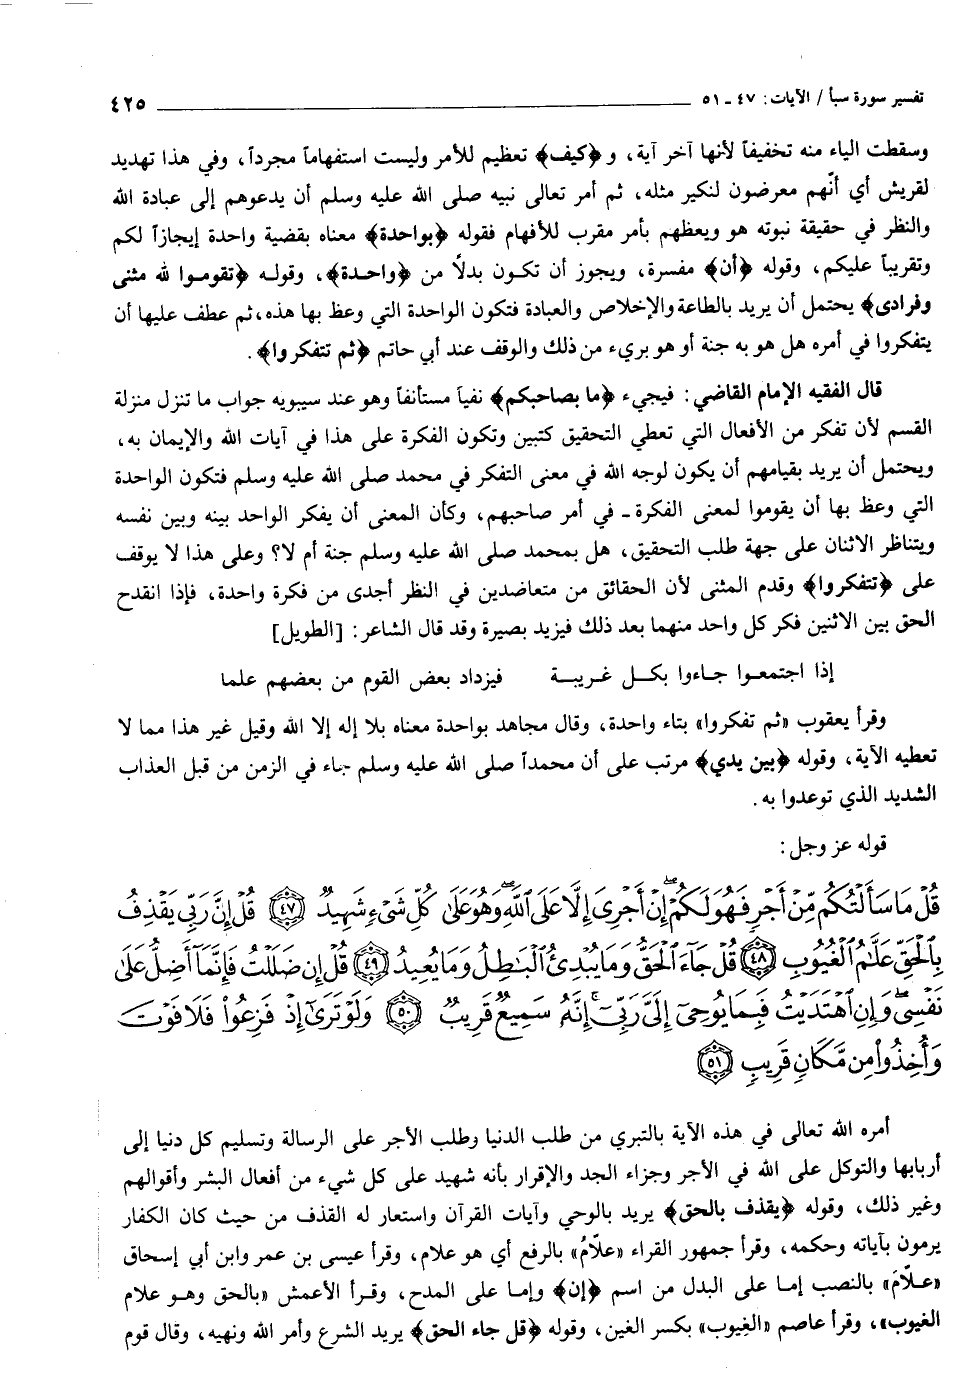 تفسير سورة سبأ / الآيات: ٤٧ ـ ٥١ ٤٢٥
وسقطت الياء منه تخفيفاً لأنها آخر آية، و ﴿كيف﴾ تعظيم للأمر وليست استفهاماً مجرداً، وفي هذا تهديد
لقريش أي أنّهم معرضون لنكير مثله، ثم أمر تعالى نبيه صلى الله عليه وسلم أن يدعوهم إلى عبادة الله
والنظر في حقيقة نبوته هو ويعظهم بأمر مقرب للأفهام فقوله ﴿بواحدة﴾ معناه بقضية واحدة إيجازاً لكم
وتقريباً عليكم، وقوله ﴿أن﴾ مفسرة، ويجوز أن تكون بدلاً من ﴿واحدة﴾، وقوله ﴿تقوموا لله مثنى
وفرادى﴾ يحتمل أن يريد بالطاعة والإخلاص والعبادة فتكون الواحدة التي وعظ بها هذه، ثم عطف عليها أن
يتفكروا في أمره هل هو به جنة أو هو بريء من ذلك والوقف عند أبي حاتم ﴿ثم تتفكروا﴾.
قال الفقيه الإمام القاضي: فيجيء ﴿ما بصاحبكم﴾ نفياً مستأنفاً وهو عند سيبويه جواب ما تنزل منزلة
القسم لأن تفكر من الأفعال التي تعطي التحقيق كتبين وتكون الفكرة على هذا في آيات الله والإيمان به،
ويحتمل أن يريد بقيامهم أن يكون لوجه الله في معنى التفكر في محمد صلى الله عليه وسلم فتكون الواحدة
التي وعظ بها أن يقوموا لمعنى الفكرة ـ في أمر صاحبهم، وكأن المعنى أن يفكر الواحد بينه وبين نفسه
ويتناظر الاثنان على جهة طلب التحقيق، هل بمحمد صلى الله عليه وسلم جنة أم لا؟ وعلى هذا لا يوقف
على ﴿تتفكروا﴾ وقدم المثنى لأن الحقائق من متعاضدين في النظر أجدى من فكرة واحدة، فإذا انقدح
الحق بين الاثنين فكر كل واحد منهما بعد ذلك فيزيد بصيرة وقد قال الشاعر: [الطويل]
إذا اجتمعوا جاءوا بكل غريبة فيزداد بعض القوم من بعضهم علما
وقرأ يعقوب «ثم تفكروا» بتاء واحدة، وقال مجاهد بواحدة معناه بلا إله إلا الله وقيل غير هذا مما لا
تعطيه الآية، وقوله ﴿بين يدي﴾ مرتب على أن محمداً صلى الله عليه وسلم جاء في الزمن من قبل العذاب
الشديد الذي توعدوا به.
قوله عز وجل:
قُلْ مَا سَأَلْتُكُم مِّنْ أَجْرٍ فَهُوَ لَكُمْ إِنْ أَجْرِيَ إِلَّا عَلَى اللَّهِ وَهُوَ عَلَىٰ كُلِّ شَيْءٍ شَهِيدٌ ﴿٤٧﴾ قُلْ إِنَّ رَبِّي يَقْذِفُ
بِالْحَقِّ عَلَّامُ الْغُيُوبِ ﴿٤٨﴾ قُلْ جَاءَ الْحَقُّ وَمَا يُبْدِئُ الْبَاطِلُ وَمَا يُعِيدُ ﴿٤٩﴾ قُلْ إِن ضَلَلْتُ فَإِنَّمَا أَضِلُّ عَلَىٰ
نَفْسِي وَإِنِ اهْتَدَيْتُ فَبِمَا يُوحِي إِلَيَّ رَبِّي إِنَّهُ سَمِيعٌ قَرِيبٌ ﴿٥٠﴾ وَلَوْ تَرَىٰ إِذْ فَزِعُوا فَلَا فَوْتَ
وَأُخِذُوا مِن مَّكَانٍ قَرِيبٍ ﴿٥١﴾
أمره الله تعالى في هذه الآية بالتبري من طلب الدنيا وطلب الأجر على الرسالة وتسليم كل دنيا إلى
أربابها والتوكل على الله في الأجر وجزاء الجد والإقرار بأنه شهيد على كل شيء من أفعال البشر وأقوالهم
وغير ذلك، وقوله ﴿يقذف بالحق﴾ يريد بالوحي وآيات القرآن واستعار له القذف من حيث كان الكفار
يرمون بآياته وحكمه، وقرأ جمهور القراء «علّامُ» بالرفع أي هو علام، وقرأ عيسى بن عمر وابن أبي إسحاق
«علّامَ» بالنصب إما على البدل من اسم ﴿إن﴾ وإما على المدح، وقرأ الأعمش «بالحق وهو علام
الغيوب»، وقرأ عاصم «الغِيوب» بكسر الغين، وقوله ﴿قل جاء الحق﴾ يريد الشرع وأمر الله ونهيه، وقال قوم